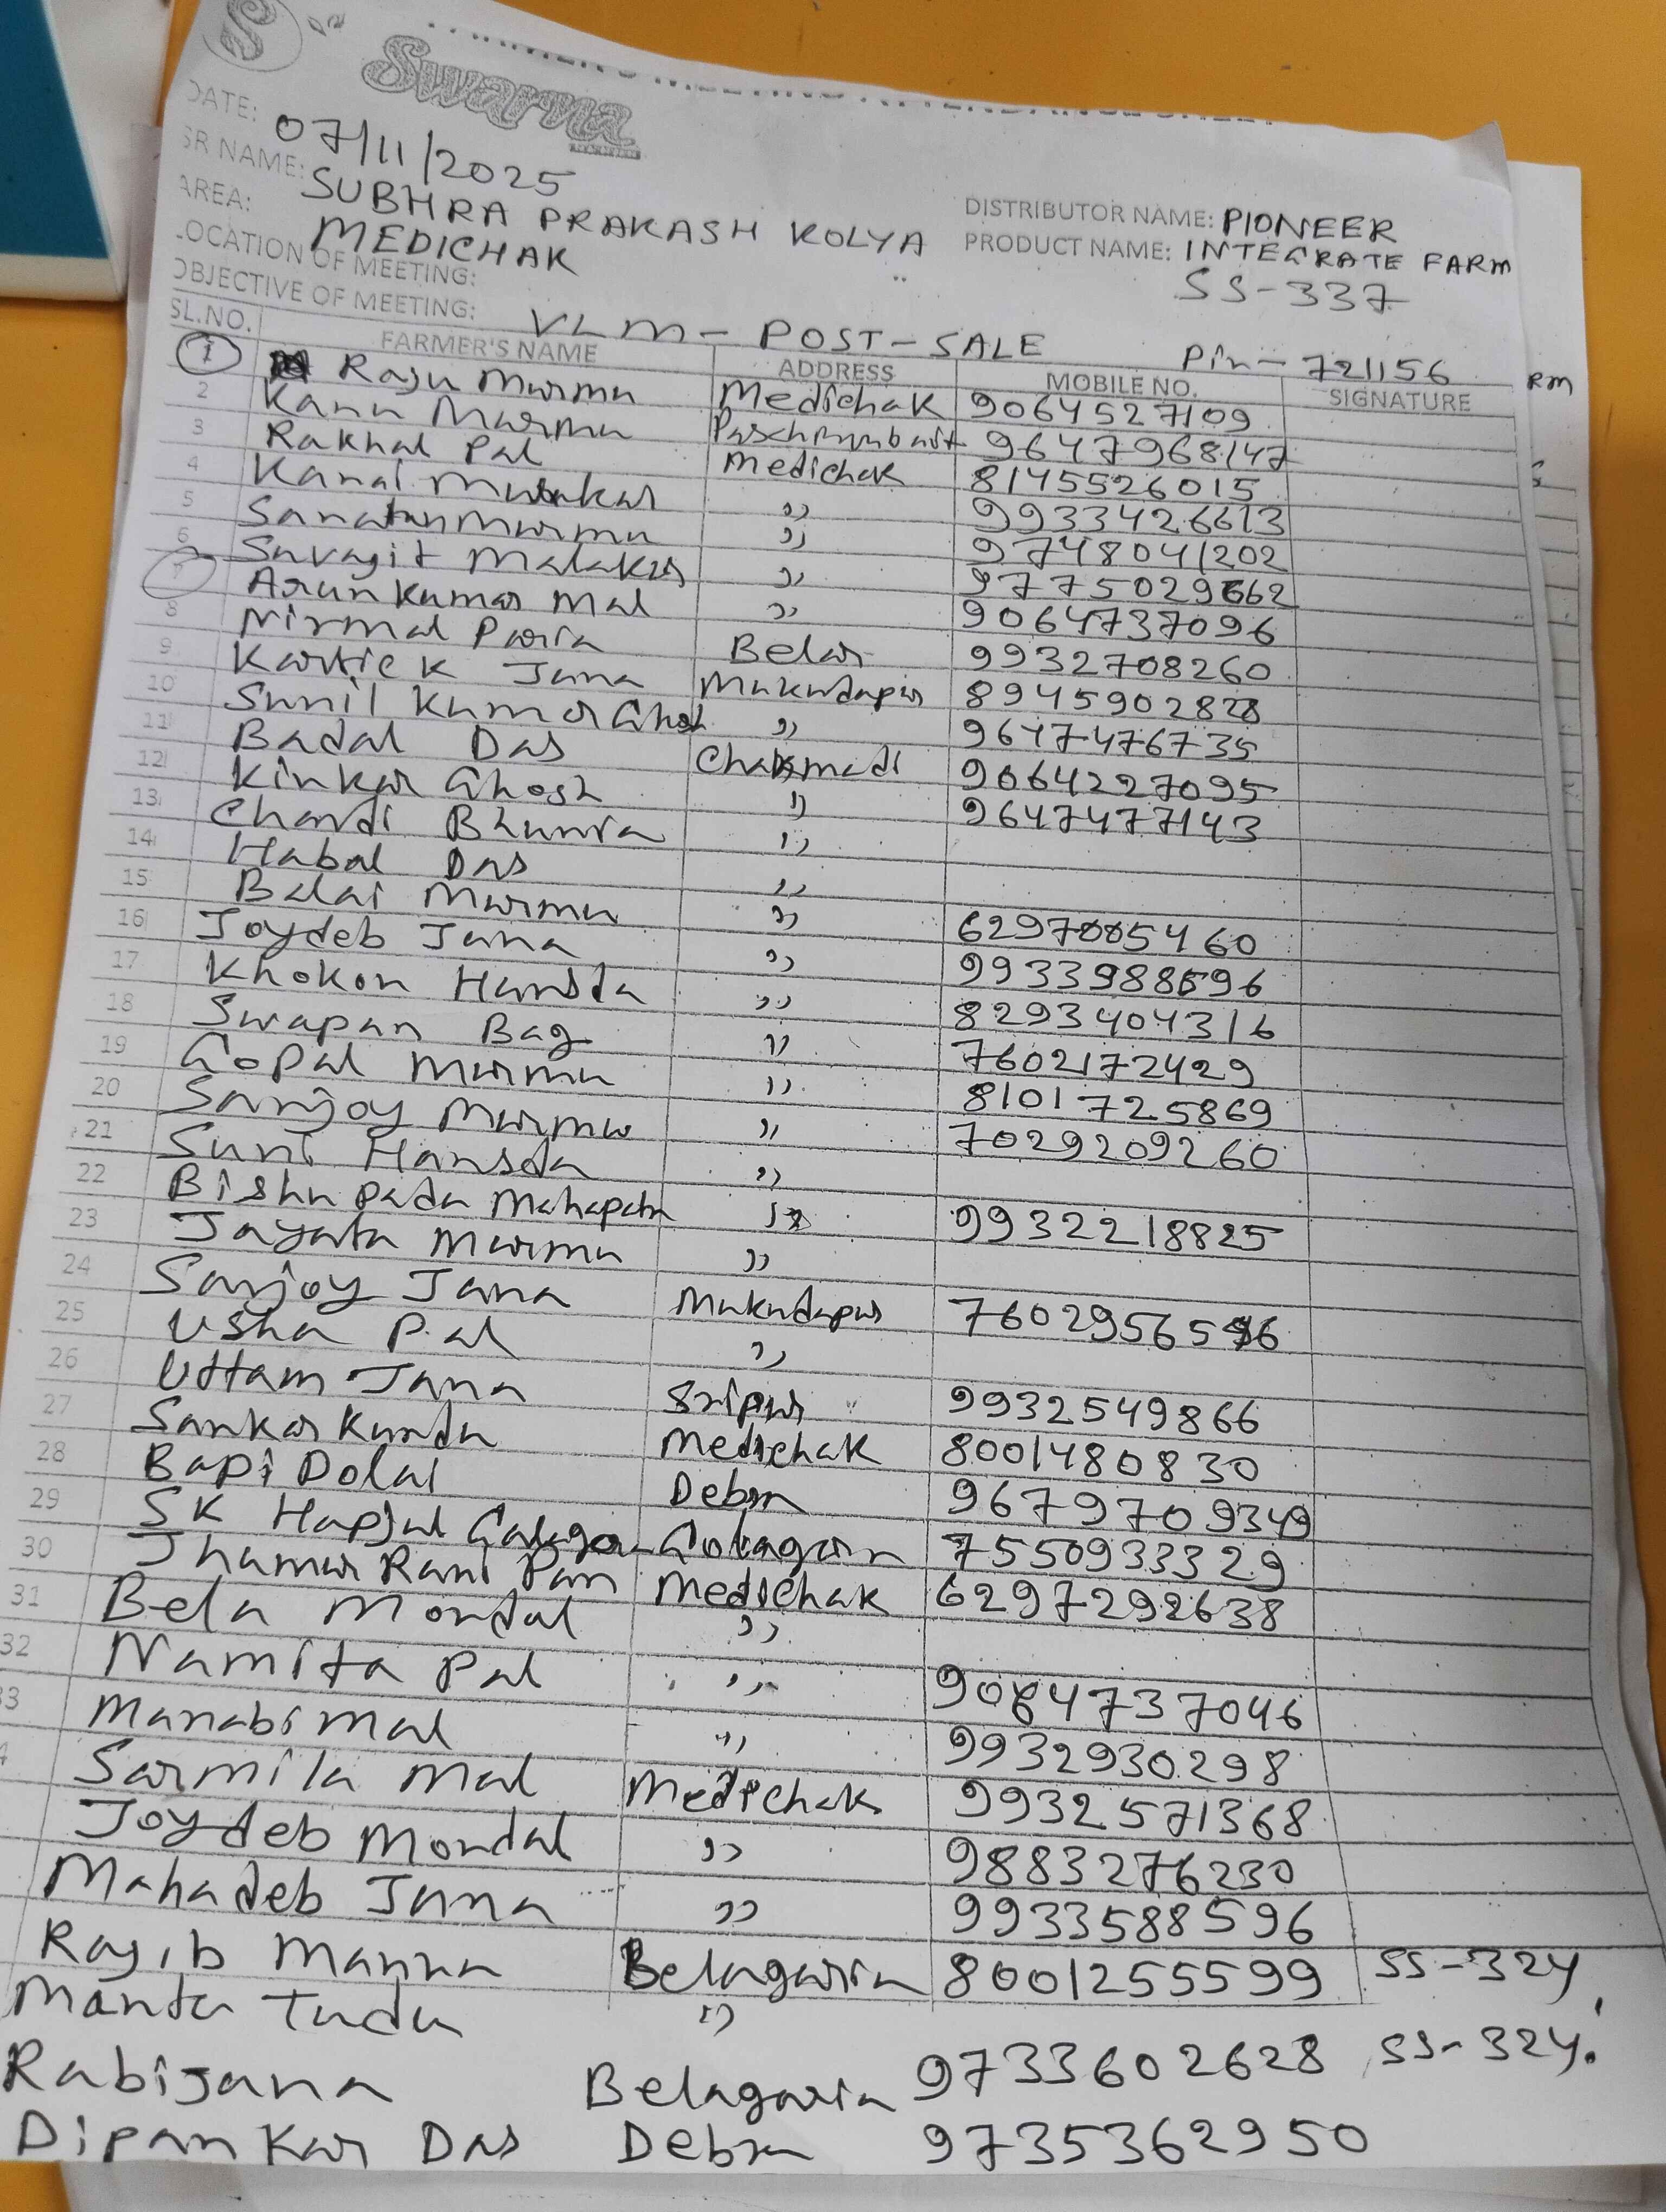 S
Swarna
FARMER'S MEETING ATTENDANCE SHEET
DATE: 07/11/2025
SR NAME: SUBHRA PRAKASH KOLYA
AREA: MEDICHAK
DISTRIBUTOR NAME: PIONEER
PRODUCT NAME: INTEGRATE FARM
SS-337
LOCATION OF MEETING:
OBJECTIVE OF MEETING: VLM - POST - SALE
Pin - 721156
SL.NO. FARMER'S NAME ADDRESS MOBILE NO. SIGNATURE
1 Raju Murmu Medichak 9064527109
2 Kanu Murmu 9647968147
3 Rakhal Pal Medichak 8145526015
4 Kanai ,, 9933426613
5 Sanatan Murmu ,, 9748041202
6 Suvagit Malakar ,,
7 Arun Kumar Mal ,, 9064737096
8 Nirmal Paria Belar 9932708260
9 Kartick Jana Mukundapur
10 Sunil Kumar Ghosh ,, 9647476735
11 Badal Das Chakmadi 9064227095
12 Kinkar Ghosh ,, 9647477143
13 Chandi Bhunia ,,
14 Habal Das ,,
15 Belai Murmu ,,
16 Joydeb Jana ,,
17 Khokon Hansda ,, 8293404316
18 Swapan Bag ,, 7602172429
19 Gopal Murmu ,, 8101725869
20 Sanjoy Murmu ,, 7029209260
21 Sunil Hansda ,,
22 Bishnu pada Mahapatra 9932218825
23 Jayanta Murmu ,,
24 Sanjoy Jana Mukundapur
25 Usha Pal ,,
26 Uttam Jana Sripur 9932549866
27 Sankar Kundu Medichak 8001480830
28 Bapi Dolai Debra 9679709349
29 SK Golagram 7550933329
30 Jhamur Rani Pan Medichak 6297292638
31 Bela Mondal ,,
32 Namita Pal ,,
33 Manabi Mal ,, 9932930298
Sarmila Mal Medichak 9932571368
Joydeb Mondal ,, 9883276230
Mahadeb Jana ,, 9933588596
Rajib Manna Belagaria 8001255599 SS-324
Mantu Tudu ,,
Rabi Jana Belagaria 9733602628 SS-324.
Dipankar Das Debra 9735362950